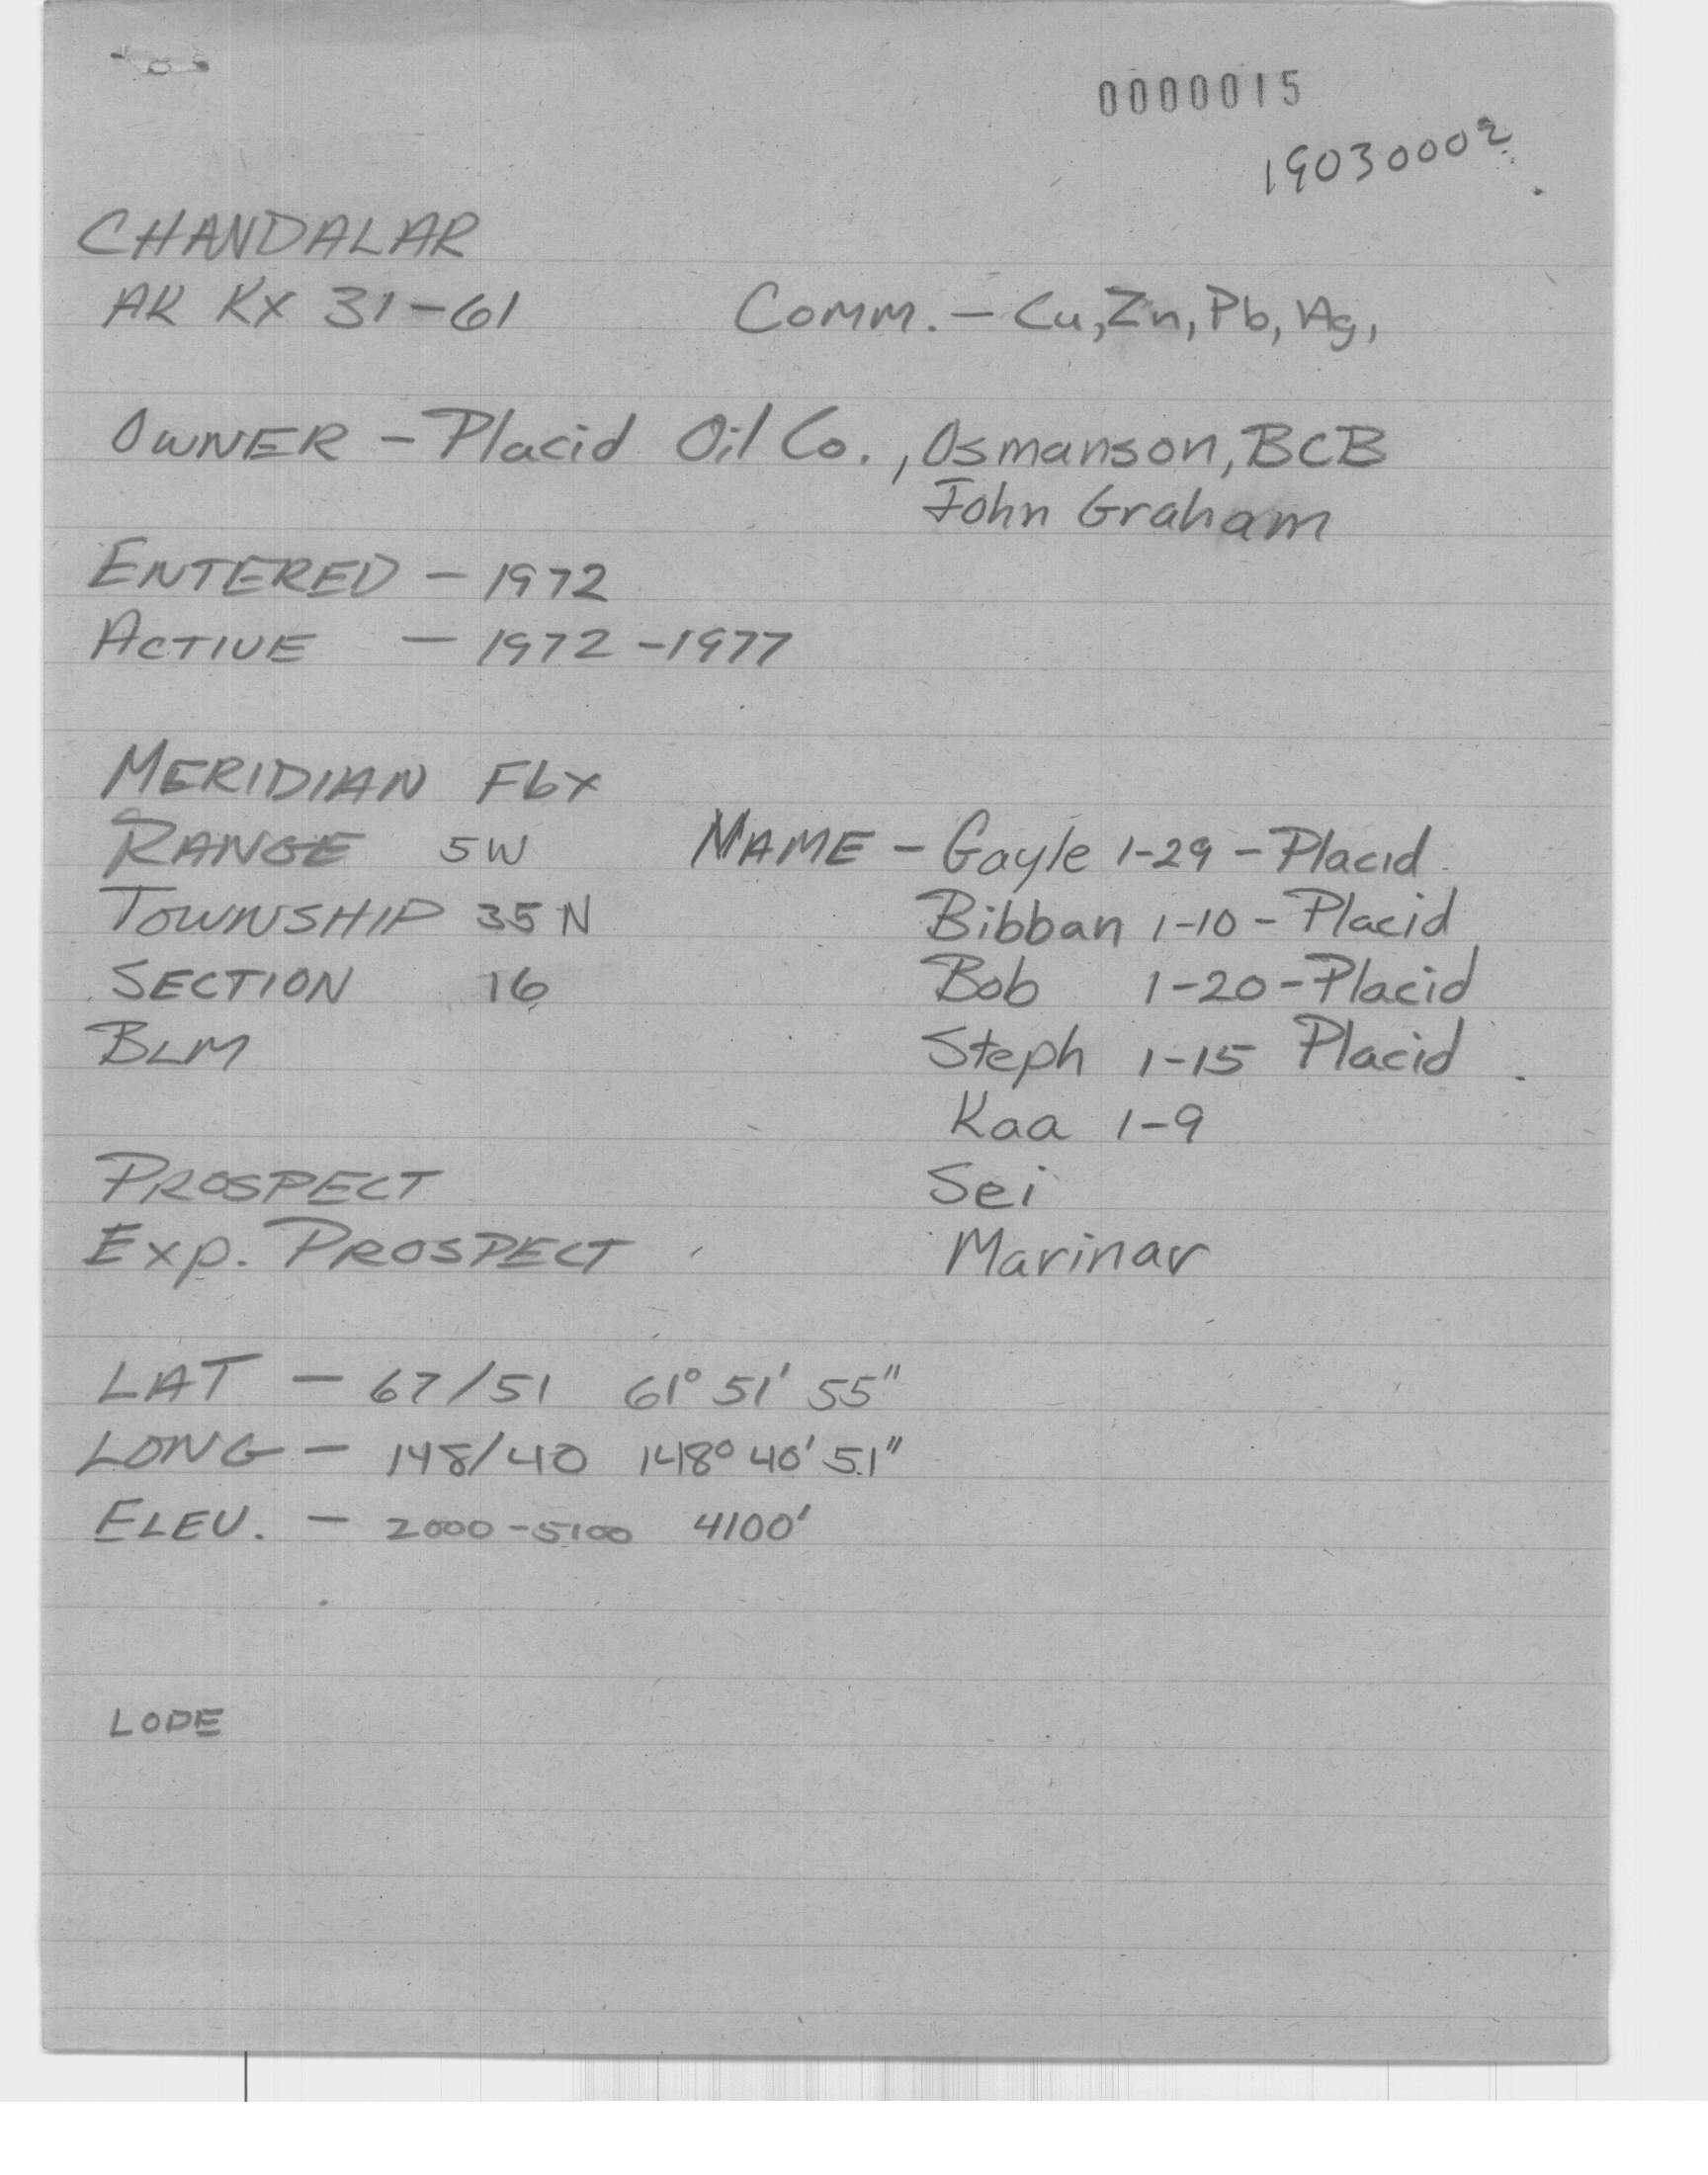 0000015
19030002
CHANDALAR
AK KX 31-61 Comm. - Cu, Zn, Pb, Ag,
OWNER - Placid Oil Co., Osmanson, BCB
John Graham
ENTERED - 1972
ACTIVE - 1972-1977
MERIDIAN Fbx
RANGE 5W NAME - Gayle 1-29 - Placid
TOWNSHIP 35N Bibban 1-10 - Placid
SECTION 16 Bob 1-20 - Placid
BLM Steph 1-15 Placid
Kaa 1-9
PROSPECT Sei
Exp. PROSPECT Marinar
LAT - 67/51 61° 51' 55"
LONG - 148/40 148° 40' 51"
ELEV. - 2000-5100 4100'
LODE